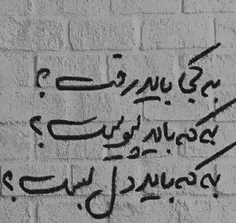 به کجا باید رفت؟
به که باید پیوست؟
به که باید دل بست؟